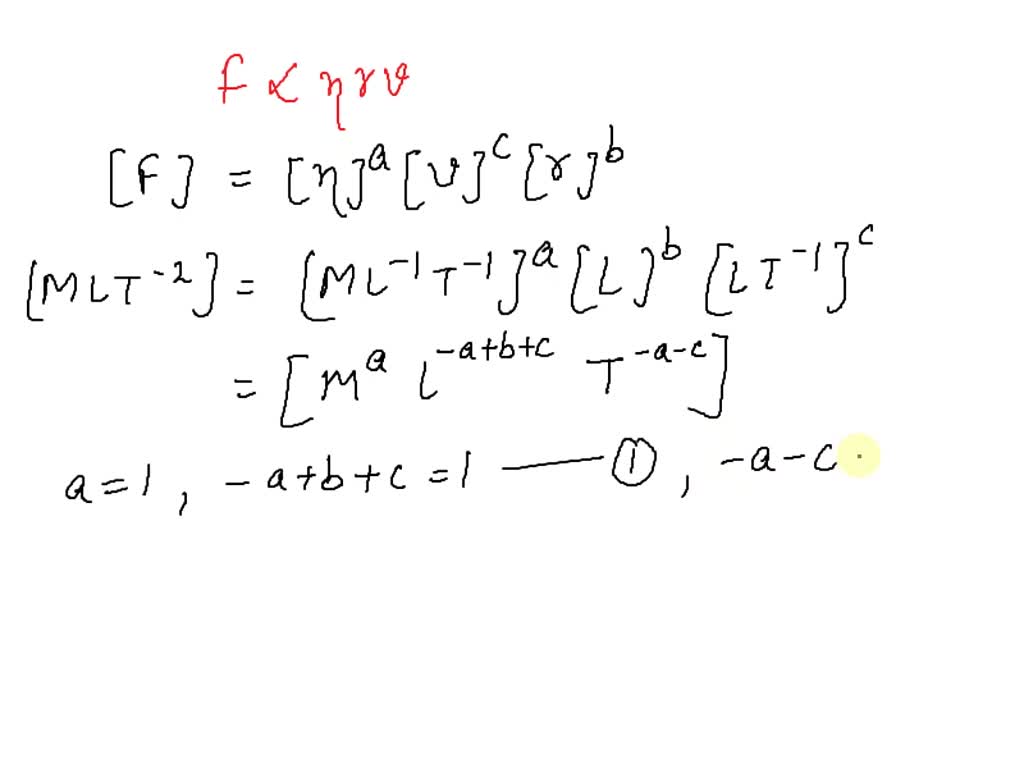 f ∝ η r v
[F] = [η]^a [v]^c [r]^b
[MLT^-2] = [ML^-1 T^-1]^a [L]^b [LT^-1]^c
= [M^a L^-a+b+c T^-a-c]
a=1, -a+b+c=1 — ①, -a-c